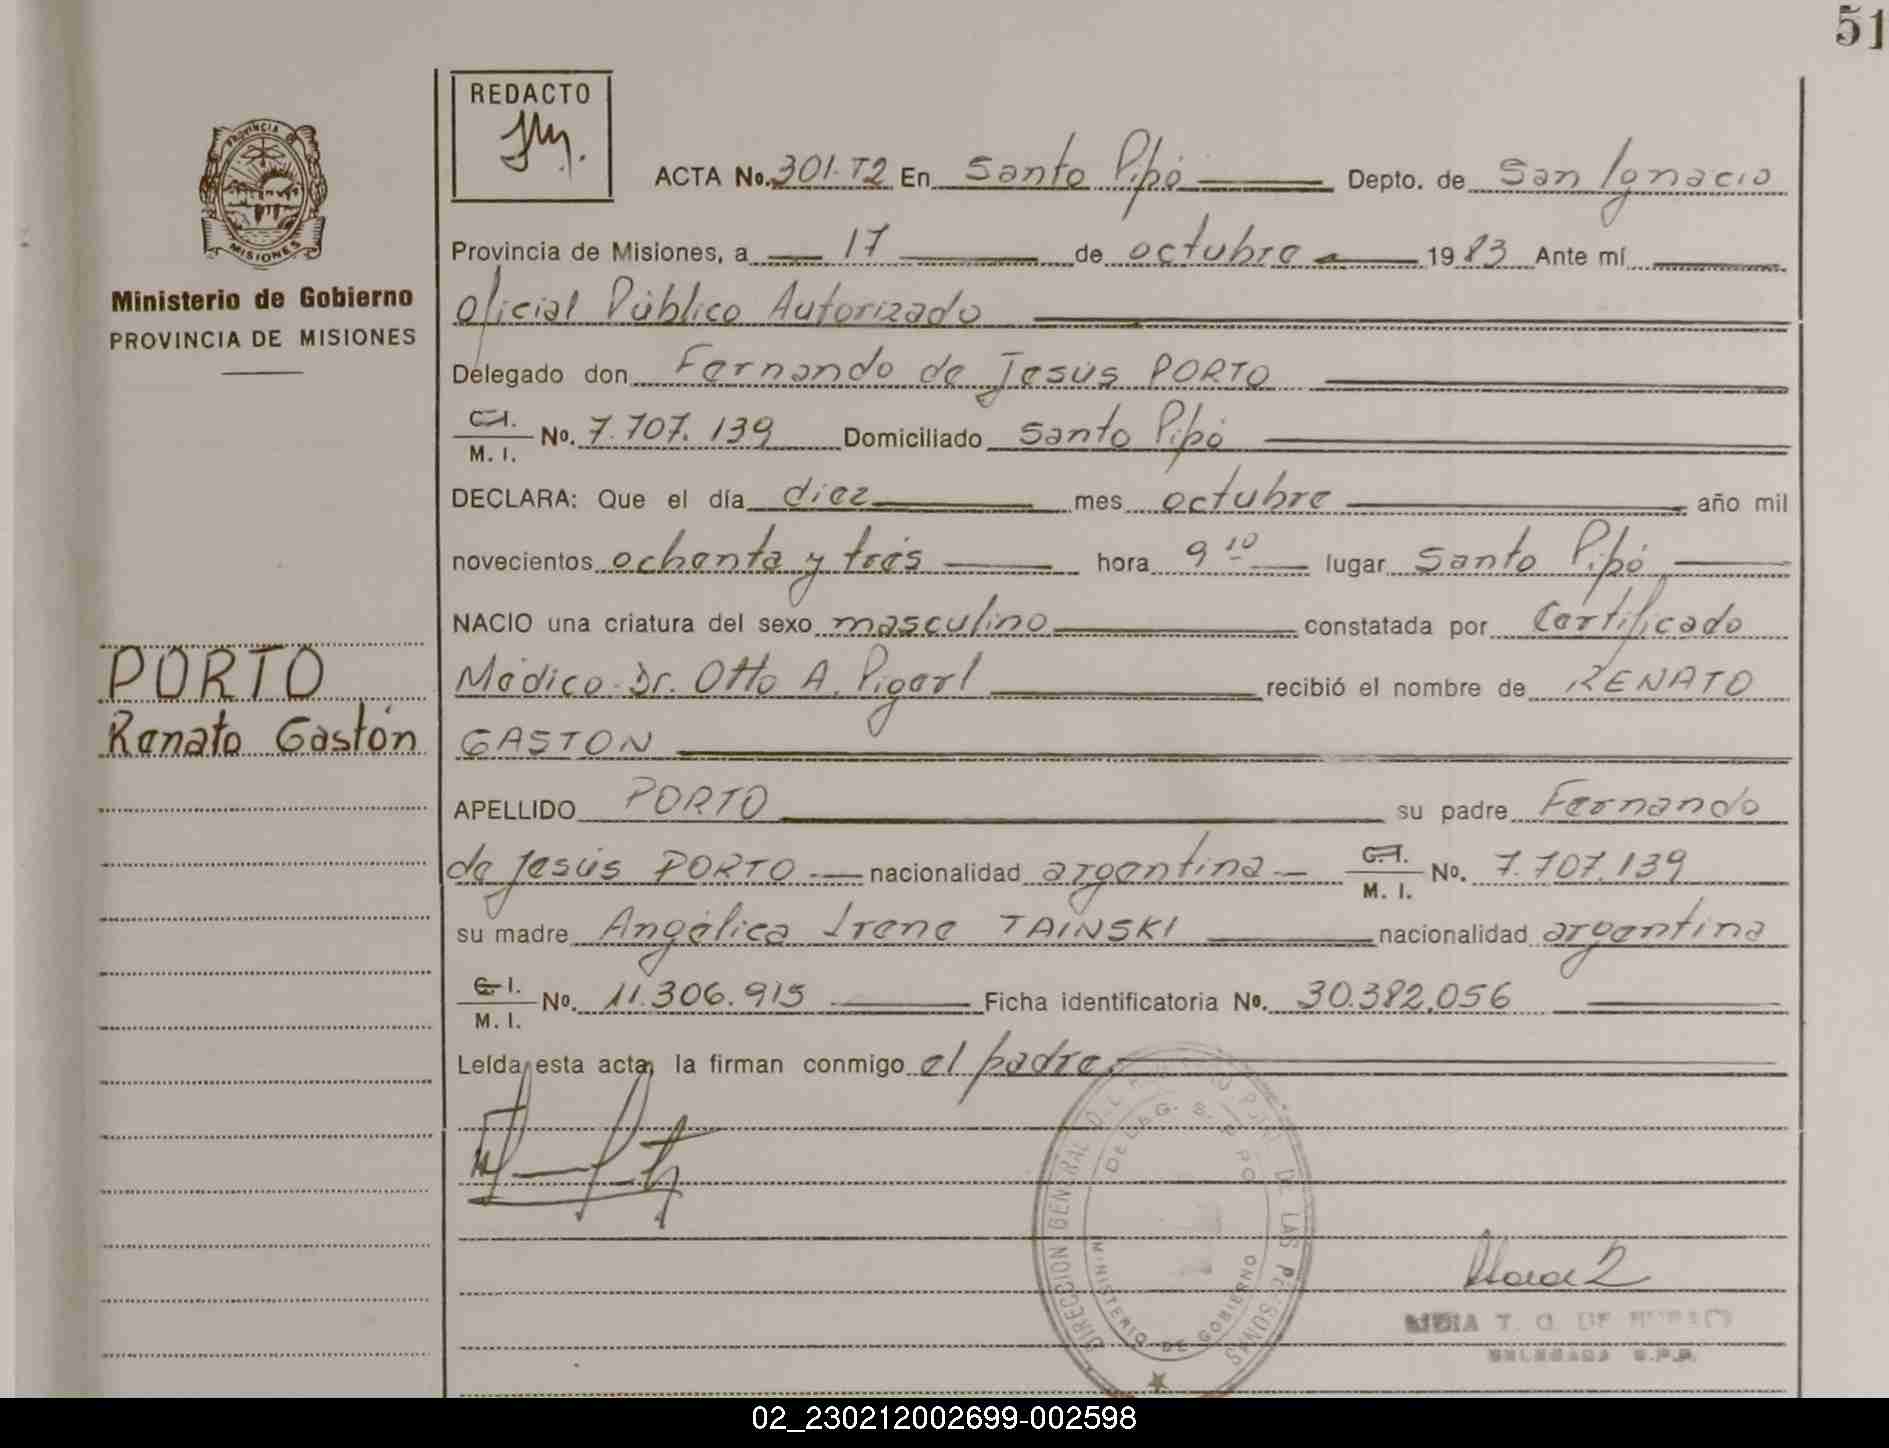 51
REDACTO
ACTA No. 301-T2 En Santo Pipó Depto. de San Ignacio
Provincia de Misiones, a 17 de octubre 1983 Ante mí
Ministerio de Gobierno
PROVINCIA DE MISIONES
PROVINCIA DE
MISIONES
Oficial Público Autorizado
Delegado don Fernando de Jesús PORTO
C.I. M. I. No. 7.707.139 Domiciliado Santo Pipó
DECLARA: Que el día diez mes octubre año mil
novecientos ochenta y tres hora 9 10 lugar Santo Pipó
NACIO una criatura del sexo masculino constatada por Certificado
PORTO
Renato Gastón
Médico Dr. Otto A. recibió el nombre de RENATO
GASTON
APELLIDO PORTO su padre Fernando
de Jesús PORTO nacionalidad argentina C.I. M. I. No. 7.707.139
su madre Angélica Irene TAINSKI nacionalidad argentina
C.I. M. I. No. 11.306.915 Ficha identificatoria No. 30.382.056
Leída esta acta, la firman conmigo el padre
DIRECCION GENERAL DE LAS PERSONAS
MINISTERIO DE GOBIERNO
02_230212002699-002598